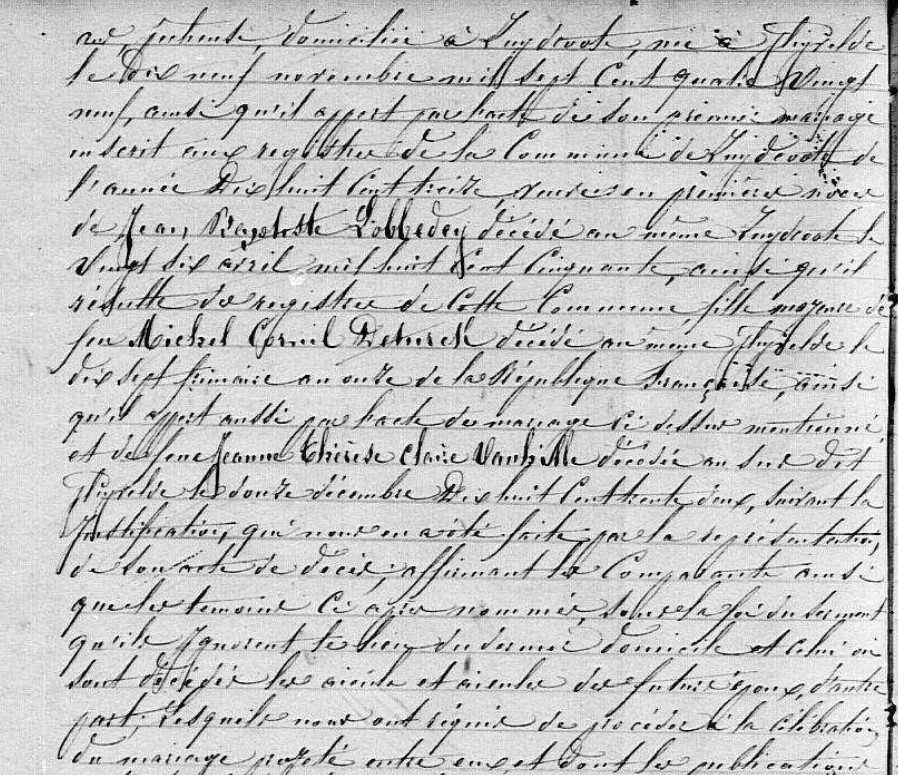 domiciliée à Zuydcoote, née à Ghyvelde
le dix neuf novembre mil sept Cent quatre Vingt
neuf, ainsi qu'il appert par l'acte de son premier mariage
inscrit aux registres de la Commune de Zuydcoote de
l'année Dix huit Cent treize, veuve en premières noces
de Jean Baptiste Lobbedey décédé au même Zuydcoote le
Vingt six avril mil huit Cent Cinquante, ainsi qu'il
résulte des registres de Cette Commune fille majeure de
feu Michel Cornil Deturck décédé au même Ghyvelde le
dix sept frimaire an onze de la République française, ainsi
qu'il appert aussi par l'acte de mariage Ci dessus mentionné,
et de feue Jeanne Thérèse Claire Vanhille décédée au sus dit
Ghyvelde le douze décembre Dix huit Cent trente deux, suivant la
Justification, qui nous en a été faite par la représentation,
de son acte de décès, affirmant les Comparants ainsi
que les temoins Ci après nommés, sous la foi du serment
qu'ils Ignorent le lieu du dernier domicile et Celui où
sont décédés les aïeuls et aïeules des futurs époux, d'autre
part; Lesquels nous ont réquis de procéder à la célébration
du mariage projeté entre eux, et dont les publications